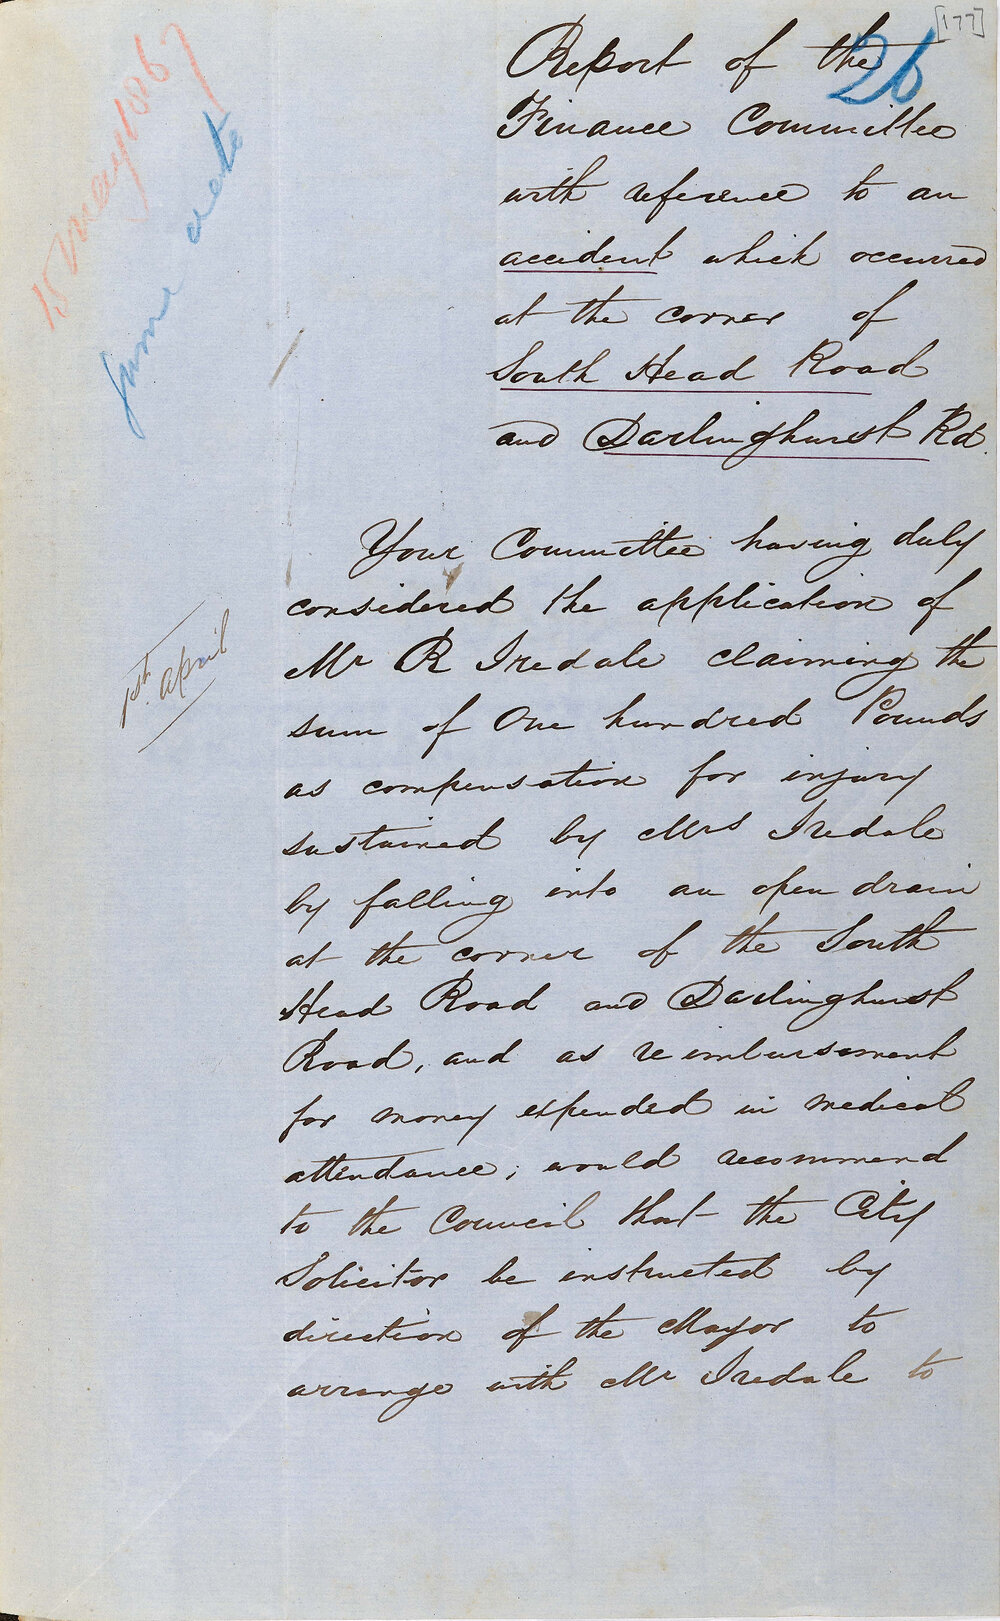 [177]
26
15 May 1867
June
1st. April
Report of the
Finance Committee
with reference to an
accident which occurred
at the corner of
South Head Road
and Darlinghurst Rd.
Your Committee having duly
considered the application of
Mr R Iredale claiming the
sum of One hundred Pounds
as compensation for injury
sustained by Mrs Iredale
by falling into an open drain
at the corner of the South
Head Road and Darlinghurst
Road, and as reimbursement
for money expended in medical
attendance; would recommend
to the Council that the City
Solicitor be instructed by
direction of the Mayor to
arrange with Mr Iredale to